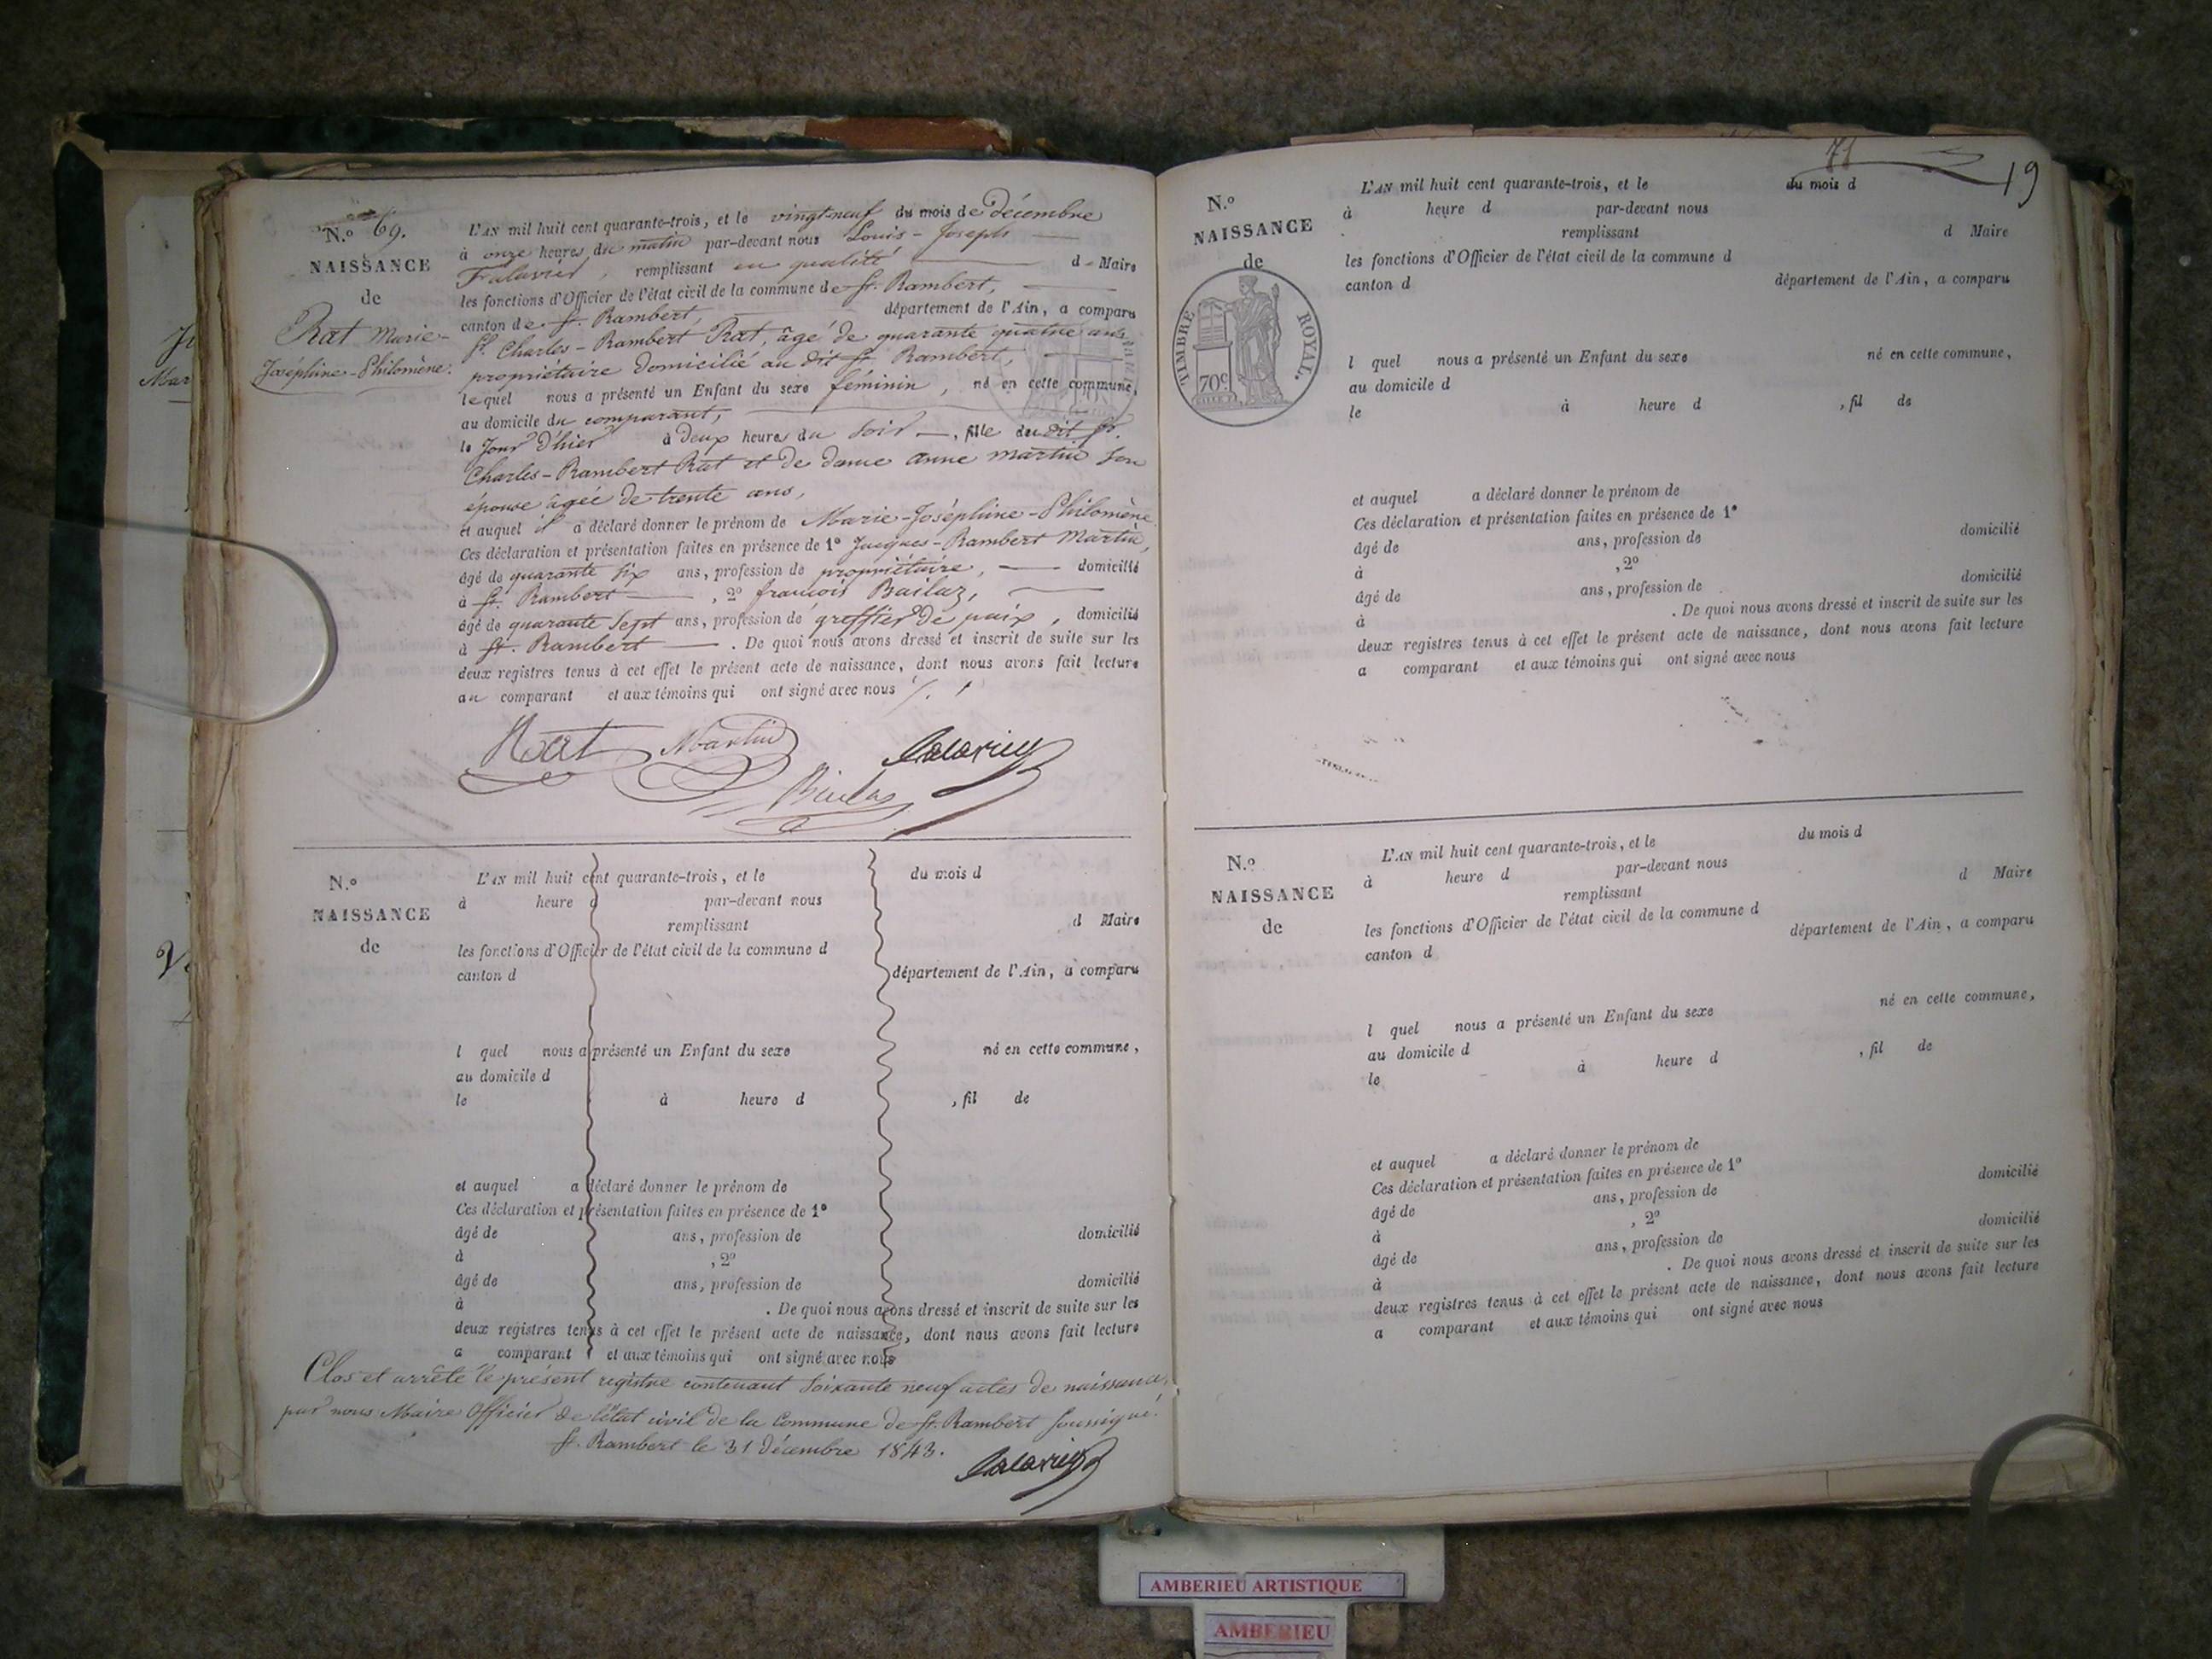 N.º 69.
NAISSANCE
de
Rat Marie-
Joséphine-Philomène.
L'AN mil huit cent quarante-trois, et le vingt-neuf du mois de décembre
à onze heures du matin par-devant nous Louis-Joseph
Falavier, remplissant en qualité d Maire
les fonctions d'Officier de l'état civil de la commune de St. Rambert,
canton de St. Rambert, département de l'Ain, a comparu
Sr. Charles-Rambert Rat, âgé de quarante quatre ans,
propriétaire domicilié au dit St. Rambert,
lequel nous a présenté un Enfant du sexe féminin, né en cette commune,
au domicile du comparant,
le Jour d'hier à deux heures du soir, fille du dit Sr.
Charles-Rambert Rat et de dame anne martin son
épouse âgée de trente ans,
et auquel il a déclaré donner le prénom de Marie-Joséphine-Philomène
Ces déclaration et présentation faites en présence de 1º Jacques-Rambert Martin,
âgé de quarante six ans, profession de propriétaire, domicilié
à St. Rambert, 2º françois Bailaz,
âgé de quarante sept ans, profession de greffier de paix, domicilié
à St. Rambert. De quoi nous avons dressé et inscrit de suite sur les
deux registres tenus à cet effet le présent acte de naissance, dont nous avons fait lecture
au comparant et aux témoins qui ont signé avec nous
Rat Martin
N.º
NAISSANCE
de
L'AN mil huit cent quarante-trois, et le du mois d
à heure d par-devant nous
remplissant d Maire
les fonctions d'Officier de l'état civil de la commune d
canton d département de l'Ain, a comparu
l quel nous a présenté un Enfant du sexe né en cette commune,
au domicile d
le à heure d , fil de
et auquel a déclaré donner le prénom de
Ces déclaration et présentation faites en présence de 1º
âgé de ans, profession de domicilié
à , 2º
âgé de ans, profession de domicilié
à . De quoi nous avons dressé et inscrit de suite sur les
deux registres tenus à cet effet le présent acte de naissance, dont nous avons fait lecture
a comparant et aux témoins qui ont signé avec nous
Clos et arrêté le présent registre contenant soixante neuf actes de naissance,
par nous Maire Officier de l'état civil de la Commune de St. Rambert soussigné.
St. Rambert le 31 décembre 1843.
71
19
N.º
NAISSANCE
de
TIMBRE ROYAL.
70c
L'AN mil huit cent quarante-trois, et le du mois d
à heure d par-devant nous
remplissant d Maire
les fonctions d'Officier de l'état civil de la commune d
canton d département de l'Ain, a comparu
l quel nous a présenté un Enfant du sexe né en cette commune,
au domicile d
le à heure d , fil de
et auquel a déclaré donner le prénom de
Ces déclaration et présentation faites en présence de 1º
âgé de ans, profession de domicilié
à , 2º
âgé de ans, profession de domicilié
à . De quoi nous avons dressé et inscrit de suite sur les
deux registres tenus à cet effet le présent acte de naissance, dont nous avons fait lecture
a comparant et aux témoins qui ont signé avec nous
N.º
NAISSANCE
de
L'AN mil huit cent quarante-trois, et le du mois d
à heure d par-devant nous
remplissant d Maire
les fonctions d'Officier de l'état civil de la commune d
canton d département de l'Ain, a comparu
l quel nous a présenté un Enfant du sexe né en cette commune,
au domicile d
le à heure d , fil de
et auquel a déclaré donner le prénom de
Ces déclaration et présentation faites en présence de 1º
âgé de ans, profession de domicilié
à , 2º
âgé de ans, profession de domicilié
à . De quoi nous avons dressé et inscrit de suite sur les
deux registres tenus à cet effet le présent acte de naissance, dont nous avons fait lecture
a comparant et aux témoins qui ont signé avec nous
AMBERIEU ARTISTIQUE
AMBERIEU